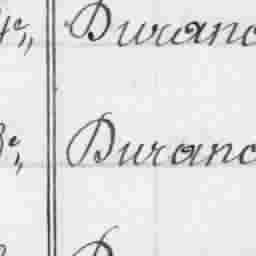 4e,, Duranc
e,, Duranc